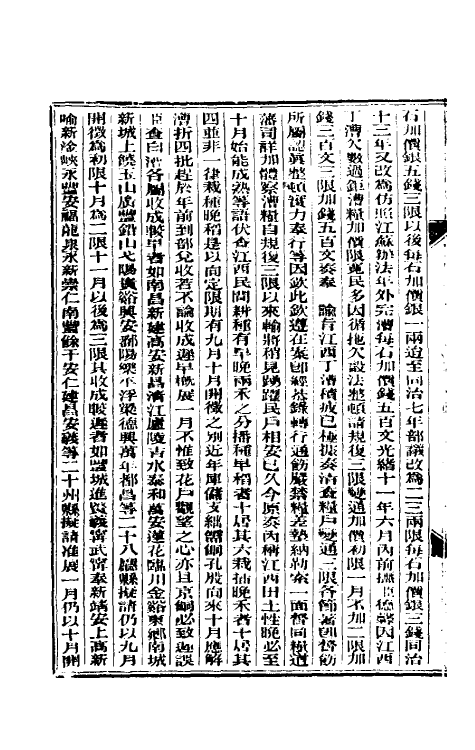 石加價銀五錢三限以後每石加價銀一兩迨至同治七年部議改爲二三兩限每石加價銀三錢同治
十三年又改爲仿照江蘇辦法年外完漕每石加價錢五百文光緒十一年六月內前撫臣德馨因江西
丁漕欠數過鉅漕糧加價限寬民多因循拖欠設法整頓請規復三限變通加價初限一月不加二限加
錢三百文三限加錢五百文奏奉 諭旨江西丁漕積成已極據奏清查糧戶變通三限各節著卽督飭
所屬認眞整頓實力奉行等因欽此欽遵在案卽經恭錄轉行通飭嚴禁糧差墊納勒索一面督同糧道
藩司詳加體察漕糧自規復三限以來輸將稍見踴躍民戶相安已久今原奏內稱江西田土性晚必至
十月始能成熟等語伏查江西民間耕種有早晚兩禾之分播種早稻者十居其六栽插晚禾者十居其
四並非一律栽種晚稻是以向定限期有九月十月開徵之別近年庫儲支絀羅掘孔殷向來十月應解
漕折四批趕於年前到部兌收若不論收成遲早槪展一月不惟致花戶觀望之心亦且京餉必致遲誤
臣查白漕各屬收成較早者如南昌新建高安新昌清江廬陵吉水泰和萬安蓮花臨川金谿東鄉南城
新城上饒玉山廣豐鉛山弋陽貴谿興安鄱陽樂平浮梁德興萬年都昌等二十八廳縣擬請仍以九月
開徵爲初限十月爲二限十一月以後爲三限其收成較遲者如豐城進賢義寧武寧奉新靖安上高新
喻新淦峽永豐安福龍泉永新崇仁南豐餘干安仁建昌安義等二十州縣擬請准展一月仍以十月開